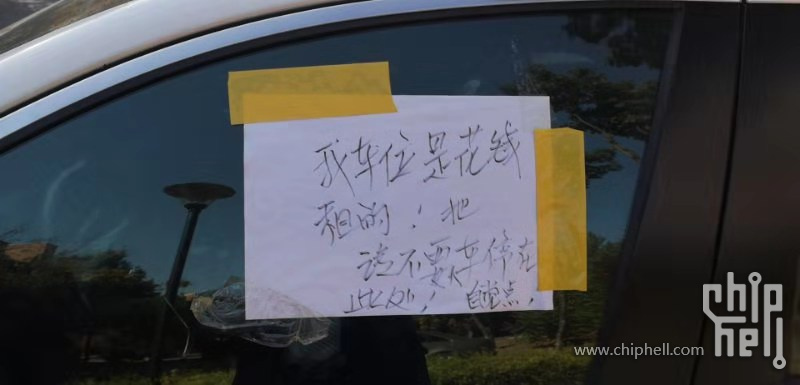 我车位是花钱
租的！把
请不要车停在
此处！自觉点！
chip
hell
www.chiphell.com